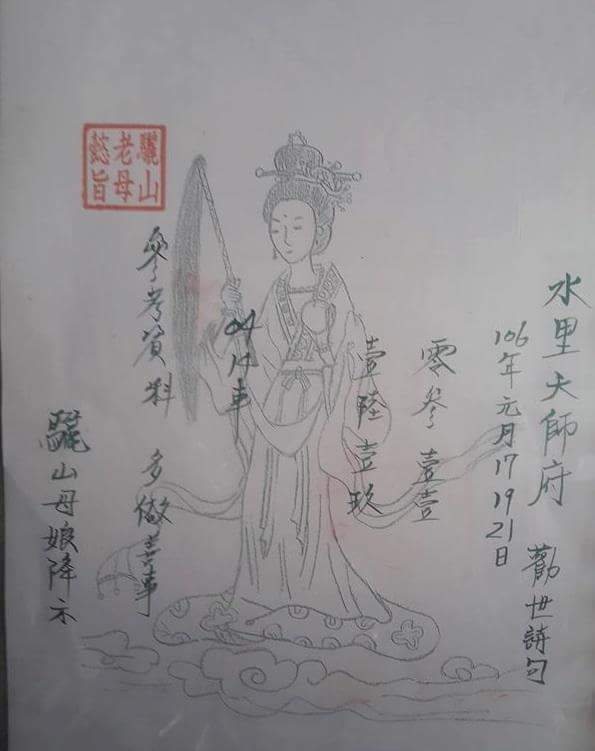 水里大師府 勸世詩句
106年元月17 19 21日
零參壹壹
壹陸壹玖
04 14車
參考資料 多做善事
驪山老母懿旨
驪山母娘降示